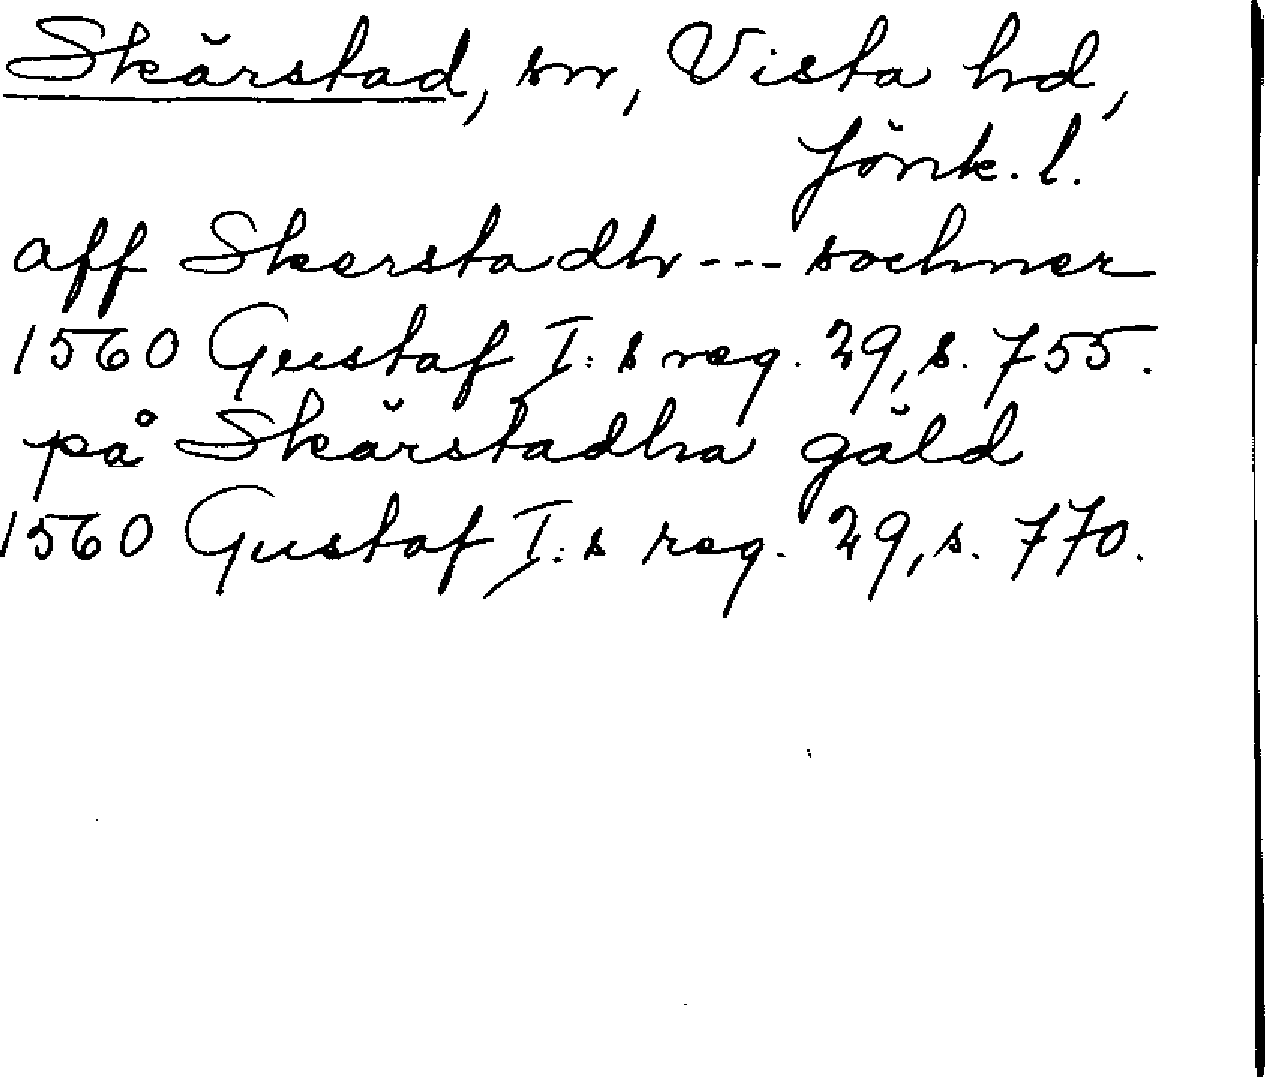 Skärstad, sn, Vista hd,
Jönk. l.
aff Skerstadh --- sochner
1560 Gustaf I:s reg. 29, s. 755.
på Skärstadha gäld
1560 Gustaf I:s reg. 29, s. 770.